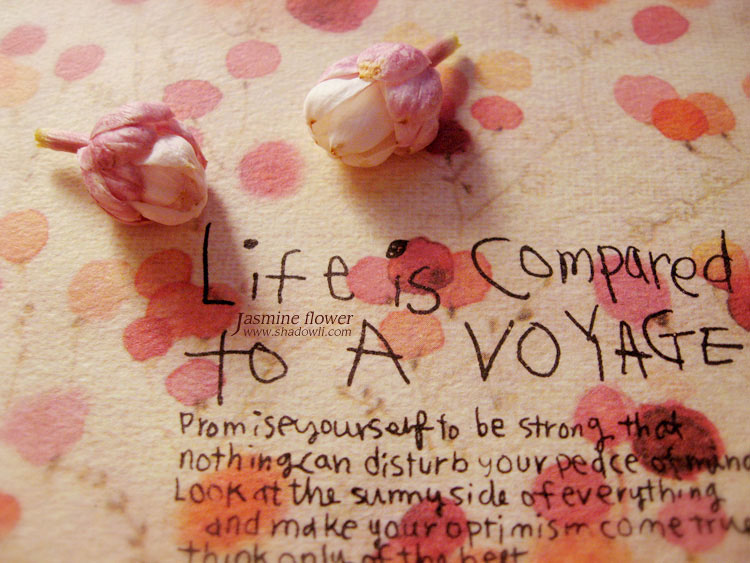 Life is Compared
Jasmine flower
www.shadowli.com
to A VOYAGE
Promise yourself to be strong that
nothing can disturb your peace of mind
Look at the sunny side of everything
and make your optimism come true
think only of the best